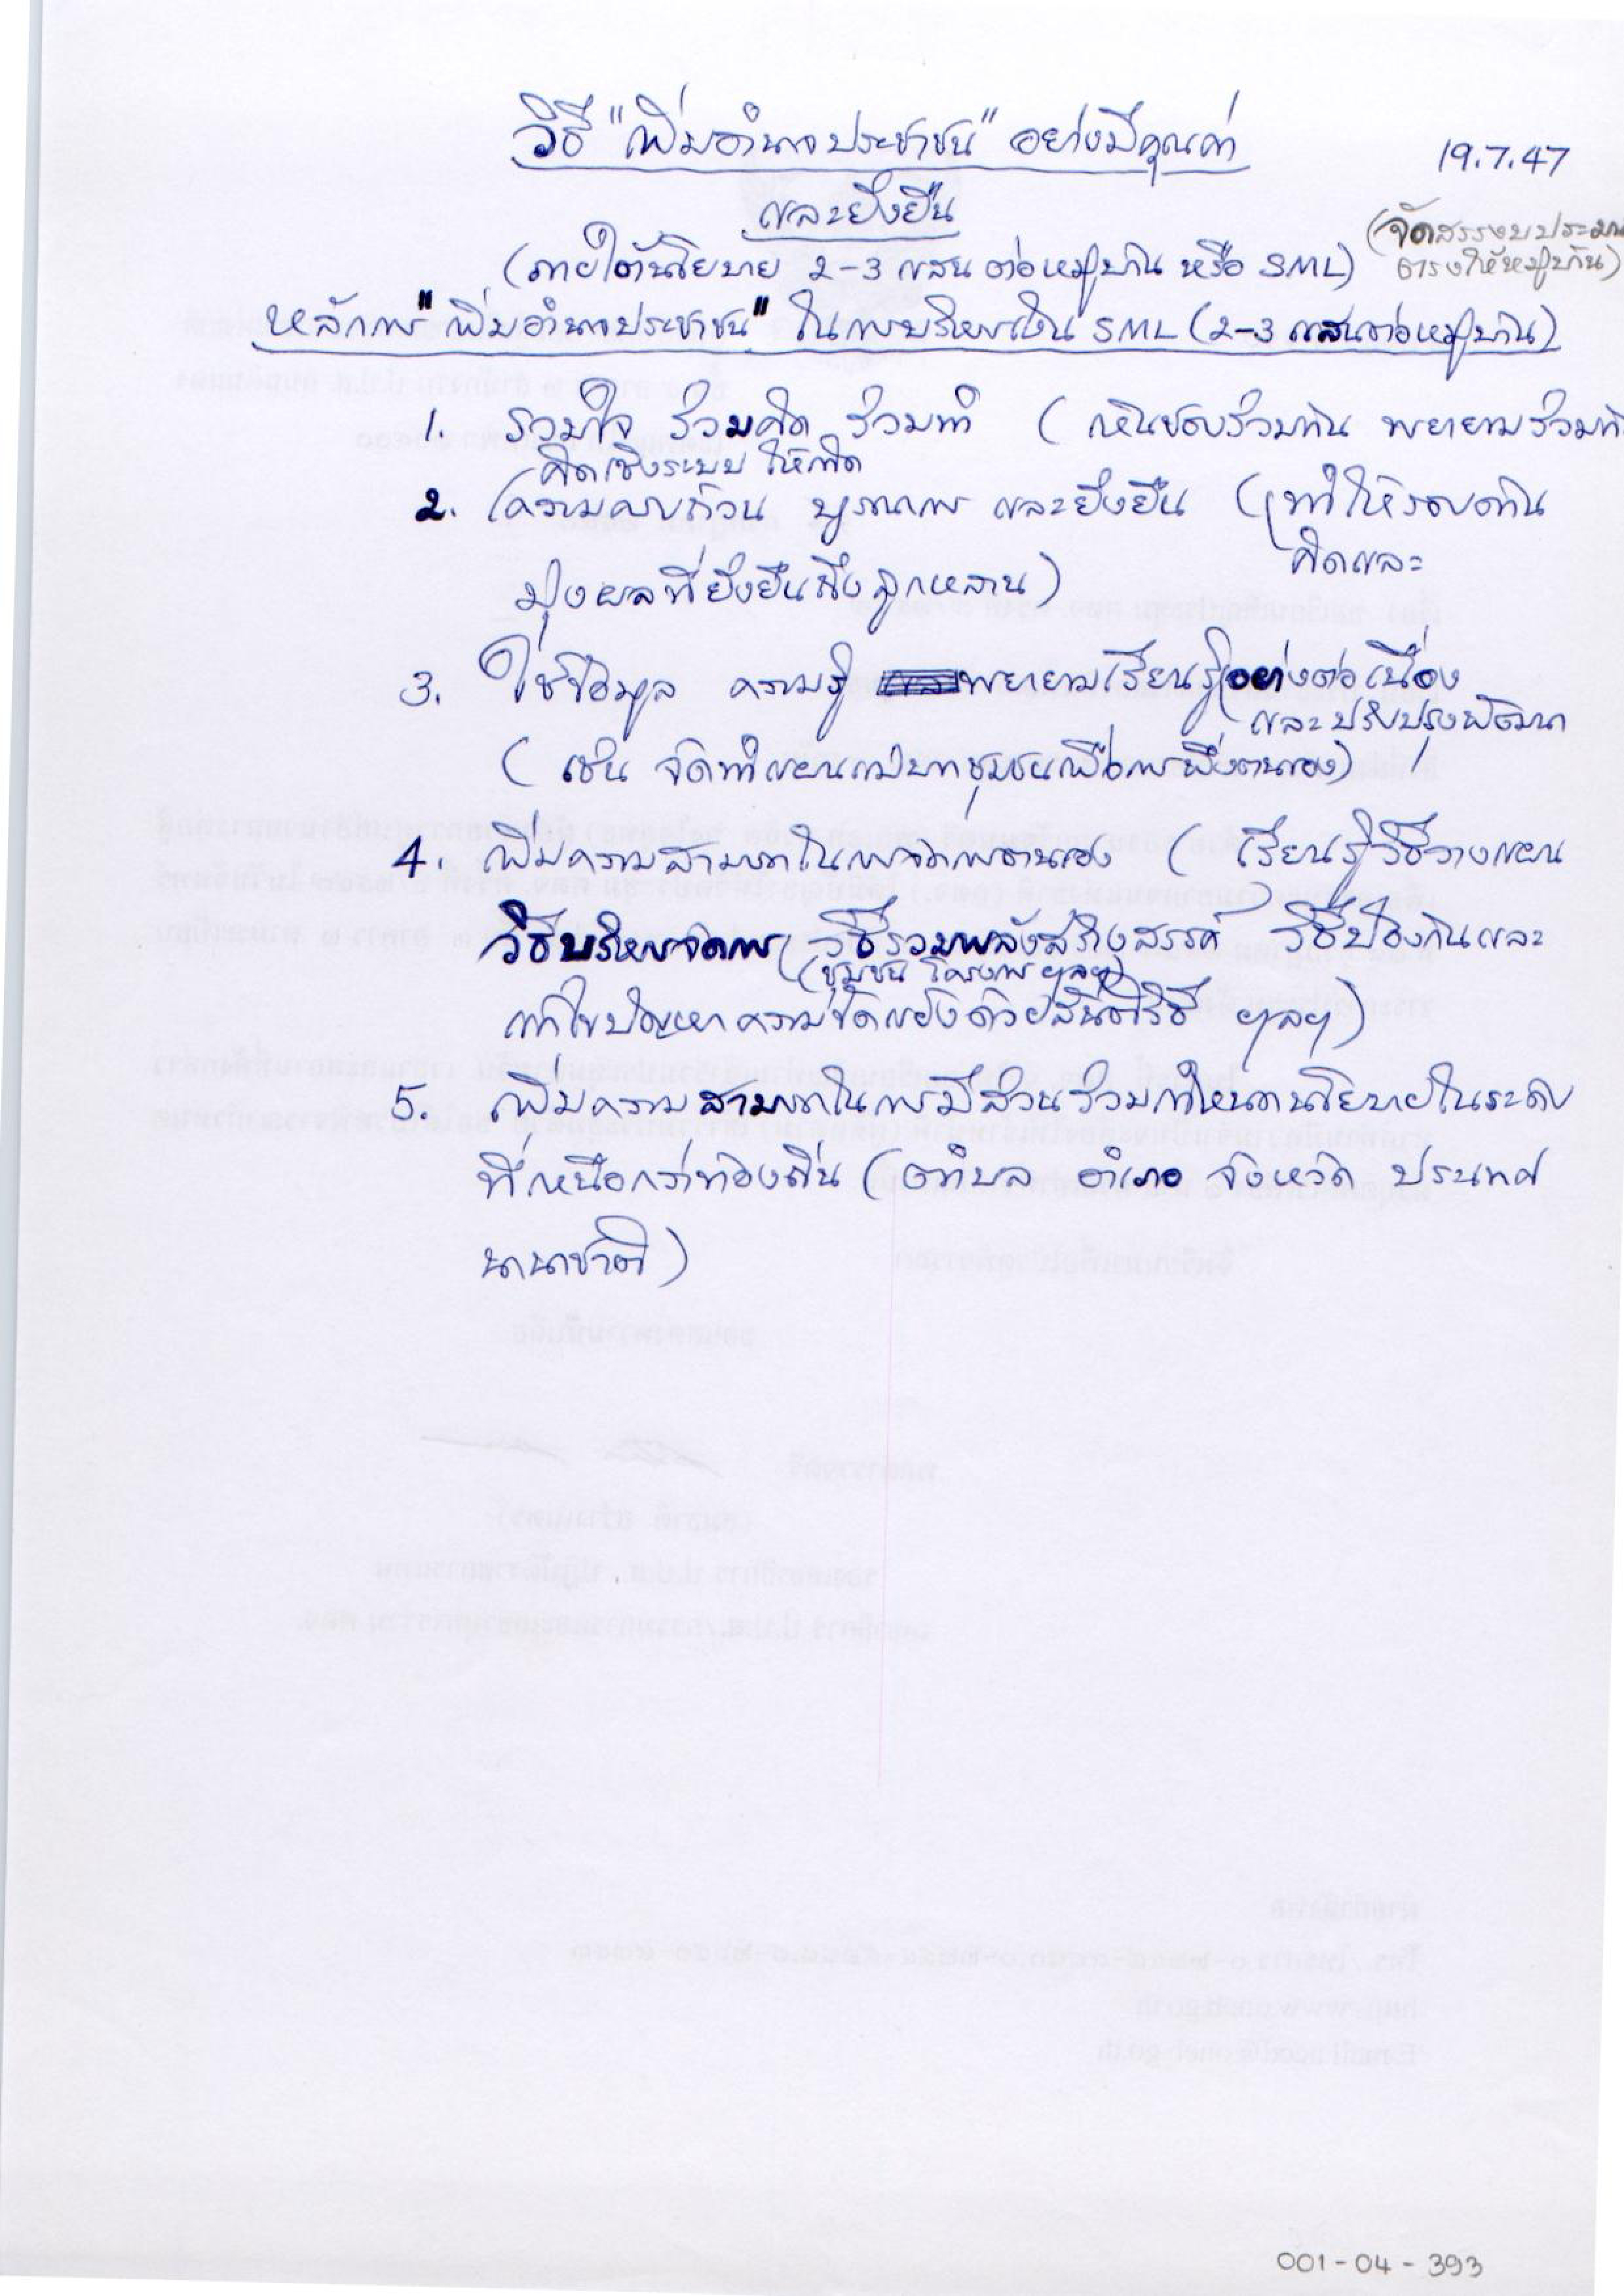 วิธี "เพิ่มอำนาจประชาชน" อย่างมีคุณค่า
19.7.47
และยั่งยืน
(ภายใต้นโยบาย 2-3 แสน ต่อหมู่บ้าน หรือ SML)
(จัดสรรงบประมาณ
ตรงให้หมู่บ้าน)
หลักการ "เพิ่มอำนาจประชาชน" ในการบริหารเงิน SML (2-3 แสนต่อหมู่บ้าน)
1. รวมใจ ร่วมคิด ร่วมทำ (เห็นชอบร่วมกัน พยายามร่วมกัน
คิดเชิงระบบ ให้เกิด
2. ความครบถ้วน บูรณาการ และยั่งยืน (ทำให้รอบด้าน
คิดและ
มุ่งผลที่ยั่งยืนถึงลูกหลาน)
3. ใช้ข้อมูล ความรู้ พยายามเรียนรู้อย่างต่อเนื่อง
และปรับปรุงพัฒนา
(เช่น จัดทำแผนแม่บทชุมชนเพื่อการพึ่งตนเอง)
4. เพิ่มความสามารถในการจัดการตนเอง (เรียนรู้วิธีวางแผน
วิธีบริหารจัดการ วิธีรวมพลังสร้างสรรค์ วิธีป้องกันและ
(ชุมชน โครงการ ฯลฯ)
แก้ไขปัญหาความขัดแย้งด้วยสันติวิธี ฯลฯ)
5. เพิ่มความสามารถในการมีส่วนร่วมกำหนดนโยบายในระดับ
ที่เหนือกว่าท้องถิ่น (ตำบล อำเภอ จังหวัด ประเทศ
นานาชาติ)
001-04-393